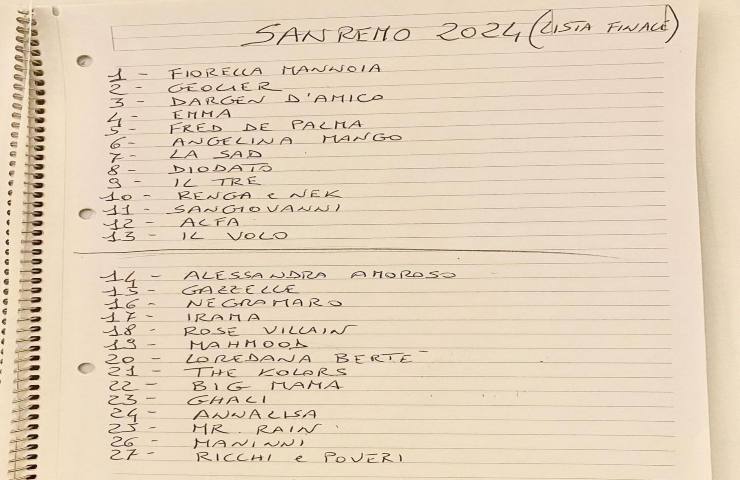 SANREMO 2024 (LISTA FINALE)
1 - FIORELLA MANNOIA
2 - GEOLIER
3 - DARGEN D'AMICO
4 - EMMA
5 - FRED DE PALMA
6 - ANGELINA MANGO
7 - LA SAD
8 - DIODATO
9 - IL TRE
10 - RENGA e NEK
11 - SANGIOVANNI
12 - ALFA
13 - IL VOLO
14 - ALESSANDRA AMOROSO
15 - GAZZELLE
16 - NEGRAMARO
17 - IRAMA
18 - ROSE VILLAIN
19 - MAHMOOD
20 - LOREDANA BERTE'
21 - THE KOLORS
22 - BIG MAMA
23 - GHALI
24 - ANNALISA
25 - MR. RAIN
26 - MANINNI
27 - RICCHI e POVERI